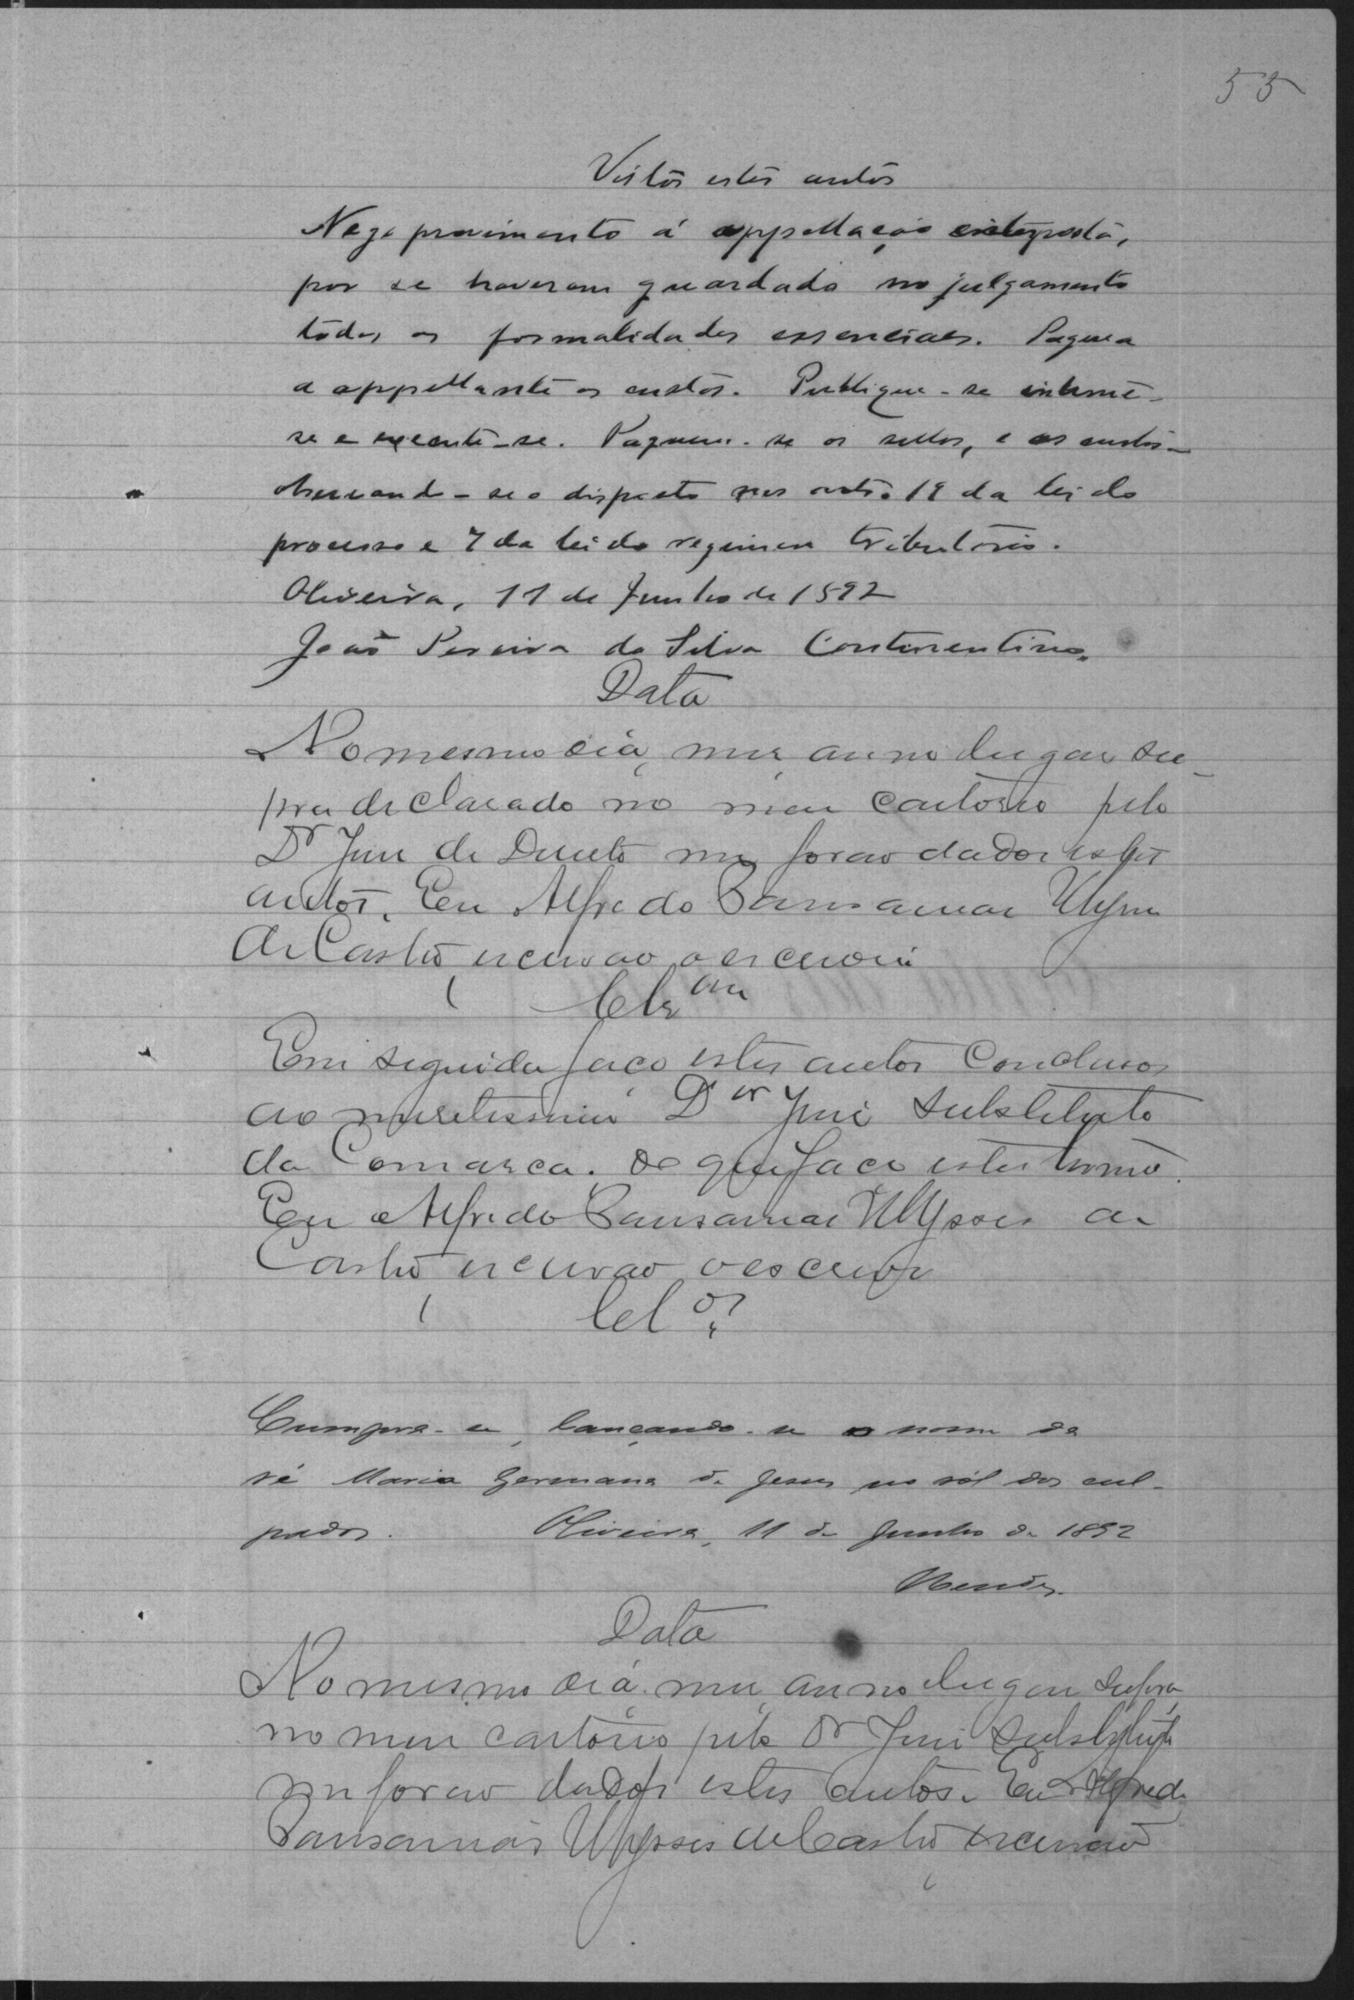 55
Vistos estes autos
Nego provimento á appellação interposta,
por se haverem guardado no julgamento
todas as formalidades essenciaes. Pague a
a appellante as custas. Publique-se intime-
se e execute-se. Paguem-se os sellos, e as custas
observando-se o disposto nos arts. 19 da lei do
processo e 7 da lei do regimen tributario.
Oliveira, 11 de Junho de 1892
João Pereira da Silva Continentino.
Data
No mesmo dia, mez, anno lugar su-
pra declarado no meu cartorio pelo
Dr Juiz de Direito me forão dados estes
autos. Eu Alfredo Pausamar Ulysses
de Castro, escrivão o escrevi
Clsam
Em seguida faço estes autos Conclusos
ao meretissimo Dor Juiz Substituto
da Comarca. do que faço este termo.
Eu Alfredo Pausamar Ulysses de
Castro escrivão o escrevi
Clos
Cumpra-se, lançando-se o nome da
ré Maria Germana de Jesus no rol dos cul-
pados. Oliveira, 11 de Junho de 1892
Mendes.
Data
No mesmo dia mez, anno lugar supra,
no meu cartorio pelo Dr Juiz Substituto
me forão dados estes autos. Eu Alfredo
Pausamar Ulysses de Castro escrivão